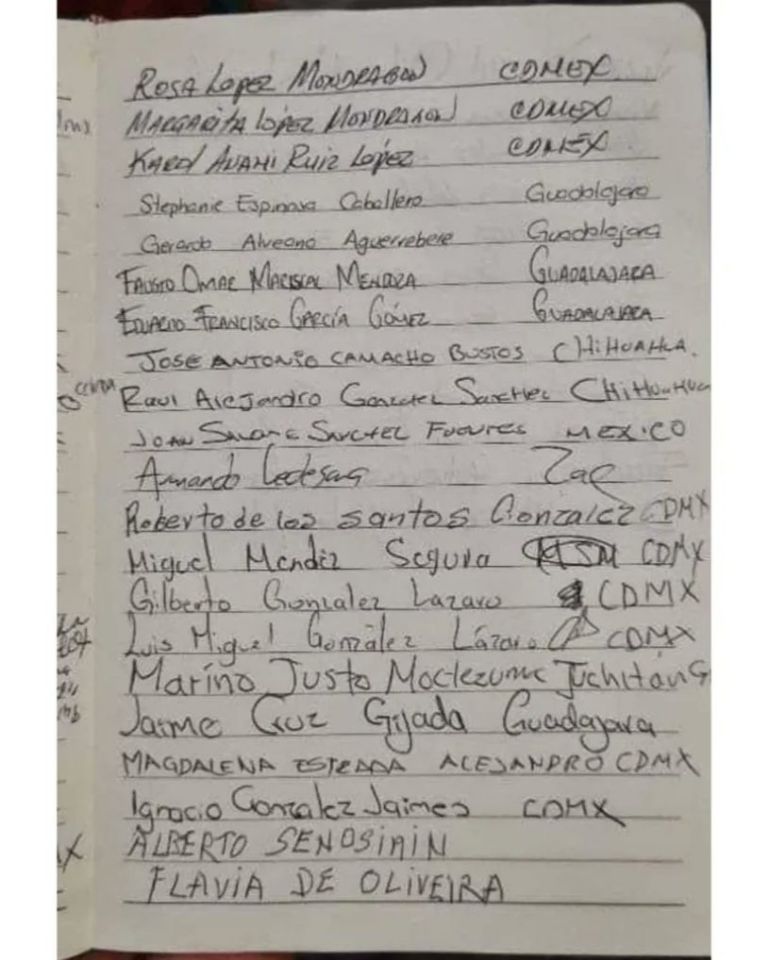 ROSA LOPEZ MONDRAGON CDMEX
MARGARITA LÓPEZ MONDRAGON CDMEX
KAROL ANAHI RUIZ LÓPEZ CDMEX
Stephanie Espinosa Caballero Guadalajara
Gerardo Alveano Aguerrebere Guadalajara
FAUSTO OMAR MARISCAL MENDOZA GUADALAJARA
EDUARDO FRANCISCO GARCÍA GÓMEZ GUADALAJARA
JOSE ANTONIO CAMACHO BUSTOS CHIHUAHUA.
Raul Alejandro Gonzalez Sanchez CHIHUAHUA
JOAN SANCHEZ MEXICO
Armando Ledesma Zac
Roberto de los santos Gonzalez CDMX
Miguel Mendez Segura CDMX
Gilberto Gonzalez Lazaro CDMX
Luis Miguel González Lázaro CDMX
Marino Justo Moctezuma Juchitán G
Jaime Cruz Gijada Guadajara
MAGDALENA ESTRADA ALEJANDRO CDMX
Ignacio Gonzalez Jaimes CDMX
ALBERTO SENOSIAIN
FLAVIA DE OLIVEIRA